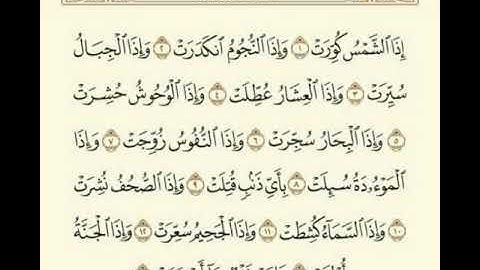 إِذَا الشَّمْسُ كُوِّرَتْ ١ وَإِذَا النُّجُومُ انْكَدَرَتْ ٢ وَإِذَا الْجِبَالُ
سُيِّرَتْ ٣ وَإِذَا الْعِشَارُ عُطِّلَتْ ٤ وَإِذَا الْوُحُوشُ حُشِرَتْ
٥ وَإِذَا الْبِحَارُ سُجِّرَتْ ٦ وَإِذَا النُّفُوسُ زُوِّجَتْ ٧ وَإِذَا
الْمَوْءُودَةُ سُئِلَتْ ٨ بِأَيِّ ذَنْبٍ قُتِلَتْ ٩ وَإِذَا الصُّحُفُ نُشِرَتْ
١٠ وَإِذَا السَّمَاءُ كُشِطَتْ ١١ وَإِذَا الْجَحِيمُ سُعِّرَتْ ١٢ وَإِذَا الْجَنَّةُ